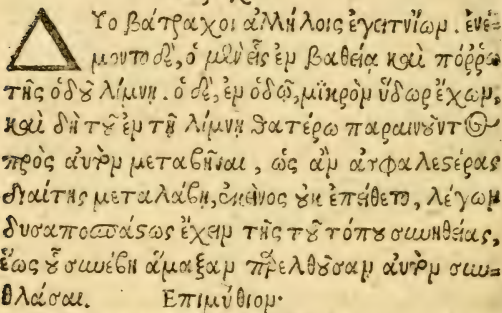 Δύο βάτραχοι ἀλλήλοις ἐγειτνίων. ἐνέ-
μοντο δὲ, ὁ μὲν εἷς ἐν βαθείᾳ καὶ πόῤῥω
τῆς ὁδοῦ λίμνῃ. ὁ δὲ, ἐν ὁδῷ, μικρὸν ὕδωρ ἔχων,
καὶ δὴ τοῦ ἐν τῇ λίμνῃ θατέρῳ παραινοῦντος
πρὸς ἀυτὸν μεταβῆναι, ὡς ἂν ἀσφαλεστέρας
διαίτης μεταλάβῃ, ἐκεῖνος οὐκ ἐπείθετο, λέγων
δυσαποσπάστως ἔχειν τῆς τοῦ τόπου συνηθείας,
ἕως οὗ συνέβη ἅμαξαν παρελθοῦσαν ἀυτὸν συν-
θλάσαι. Επιμύθιον·